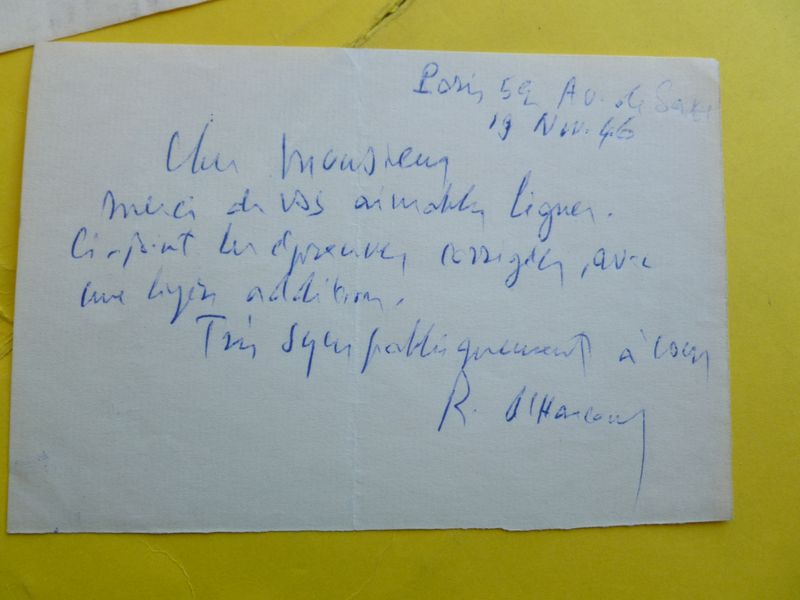 Paris 59 Av. de Saxe
19 Nov. 46
Cher Monsieur
Merci de vos aimables lignes.
Ci-joint les épreuves corrigées, avec
une légère addition.
Très sympathiquement à vous
R. d'Harcourt